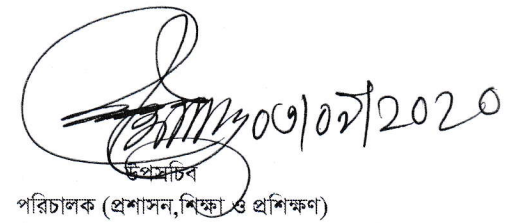 ০৩/০২/2020
উপসচিব
পরিচালক (প্রশাসন,শিক্ষা ও প্রশিক্ষণ)